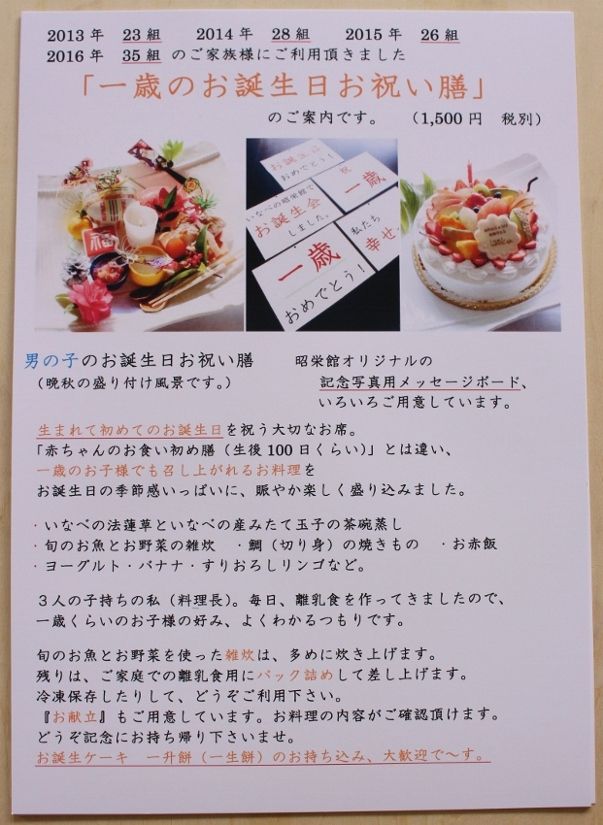 2013年 23組 2014年 28組 2015年 26組
2016年 35組 のご家族様にご利用頂きました
「一歳のお誕生日お祝い膳」
のご案内です。 (1,500円 税別)
福
お誕生日
おめでとう!
祝
一歳
いなべの昭栄館で
お誕生会
しました。
私たち
幸せ.
一歳
おめでとう!
男の子のお誕生日お祝い膳
(晩秋の盛り付け風景です。)
昭栄館オリジナルの
記念写真用メッセージボード、
いろいろご用意しています。
生まれて初めてのお誕生日を祝う大切なお席。
「赤ちゃんのお食い初め膳(生後100日くらい)」とは違い、
一歳のお子様でも召し上がれるお料理を
お誕生日の季節感いっぱいに、賑やか楽しく盛り込みました。
・いなべの法蓮草といなべの産みたて玉子の茶碗蒸し
・旬のお魚とお野菜の雑炊 ・鯛(切り身)の焼きもの ・お赤飯
・ヨーグルト・バナナ・すりおろしリンゴなど。
3人の子持ちの私(料理長)。毎日、離乳食を作ってきましたので、
一歳くらいのお子様の好み、よくわかるつもりです。
旬のお魚とお野菜を使った雑炊は、多めに炊き上げます。
残りは、ご家庭での離乳食用にパック詰めして差し上げます。
冷凍保存したりして、どうぞご利用下さい。
『お献立』もご用意しています。お料理の内容がご確認頂けます。
どうぞ記念にお持ち帰り下さいませ。
お誕生ケーキ 一升餅(一生餅)のお持ち込み、大歓迎で~す。